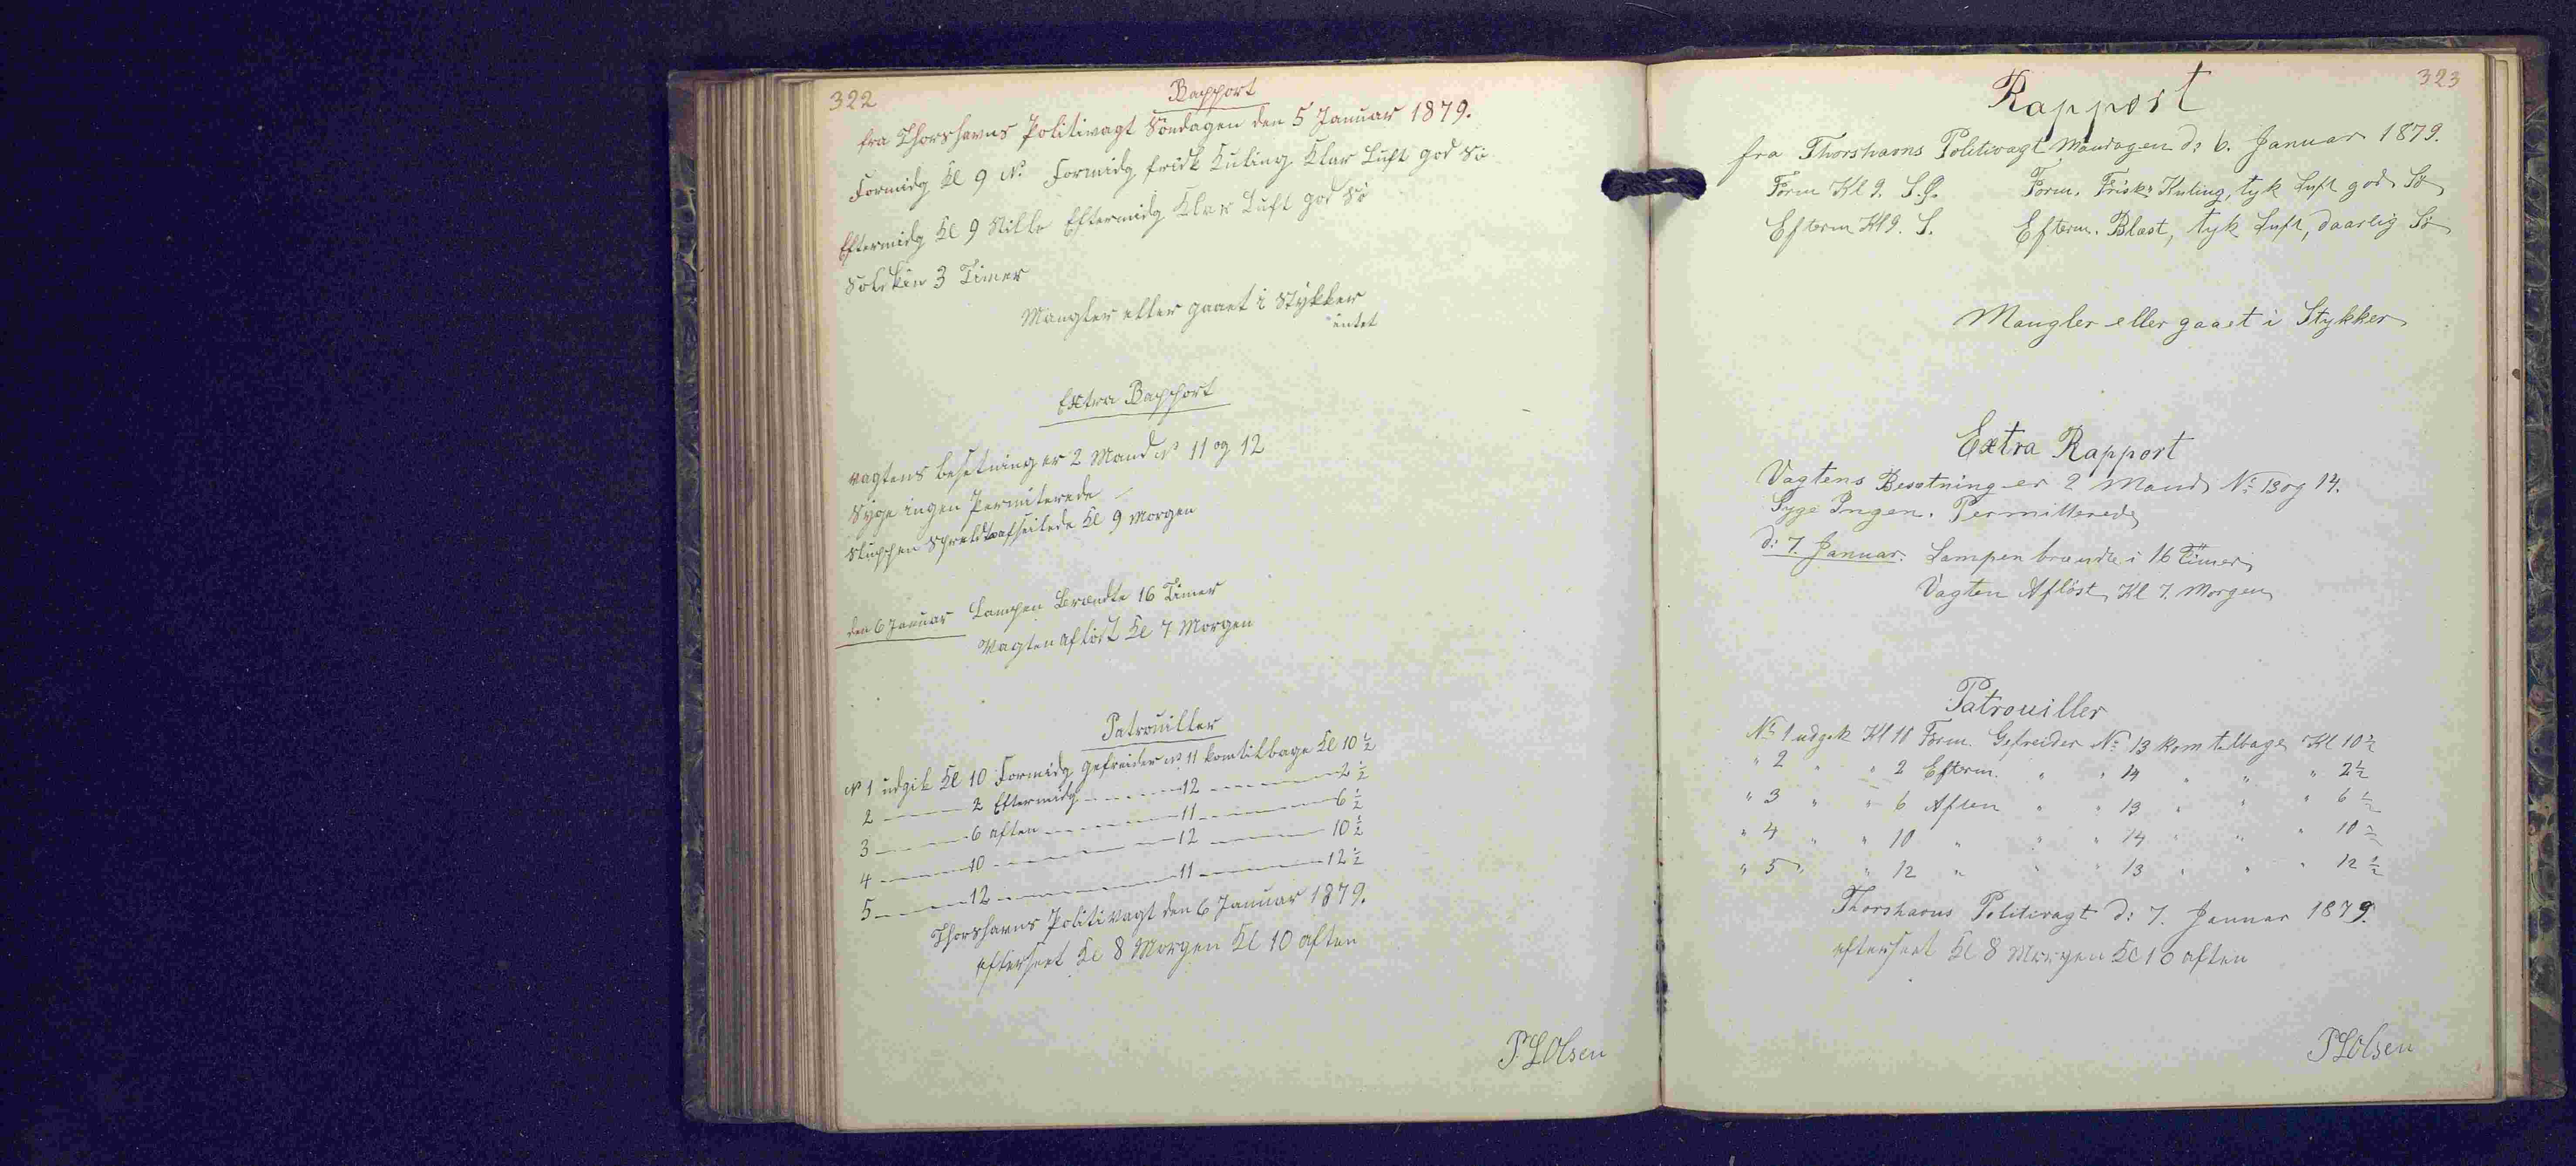 322
Rapport
fra Thorshavns Politivagt Söndagen den 5 Januar 1879.
Formidg Kl 9 N. Formidg frisk Kuling Klar Luft god Sö
Eftermidg Kl 9 Stille Eftermidg Klar Luft god Sö
Solskin 3 Timer
Mangler eller gaaet i Stykker
intet
Extra Rapport
vagtens besetning er 2 Mand N 11 og 12
Syge ingen Permiterede
Sluppen afseilede Kl 9 Morgen
den 6 Januar Lampen Brændte 16 Timer
Vagten aflöst Kl 7 Morgen
Patrouiller
N 1 udgik Kl 10 Formidg gefreider N. 11 kom tilbage Kl 10 1/2
2 — 2 Eftermidg — 12 — 2 1/2
3 — 6 aften — 11 — 6 1/2
4 — 10 — 12 — 10 1/2
5 — 12 — 11 — 12 1/2
Thorshavns Politivagt den 6 Januar 1879.
efterseet Kl 8 Morgen Kl 10 aften
P L Olsen
323
Rapport
fra Thorshavns Politivagt Mandagen d: 6. Januar 1879.
Form Kl 9. S.Ø. Form. Frisk Kuling, tyk Luft god Sø
Efterm Kl 9. S. Efterm. Blæst, tyk Luft, daarlig Sø
Mangler eller gaaet i Stykker
Extra Rapport
Vagtens Besætning er 2 Mand No 13 og 14.
Syge Ingen. Permitterede
d: 7. Januar. Lampen brændte i 16 Timer
Vagten Afløst, Kl 7. Morgen
Patrouiller
No 1 udgik Kl 11 Form. Gefreider No 13 kom tilbage Kl 10 1/2
" 2 " " 2 Efterm. " " 14 " " " 2 1/2
" 3 " " 6 Aften " " 13 " " " 6 1/2
" 4 " " 10 " " " 14 " " " 10 1/2
" 5 " " 12 " " " 13 " " " 12 1/2
Thorshavns Politivagt d: 7. Januar 1879.
efterseet Kl 8 Morgen Kl 10 aften
P L Olsen